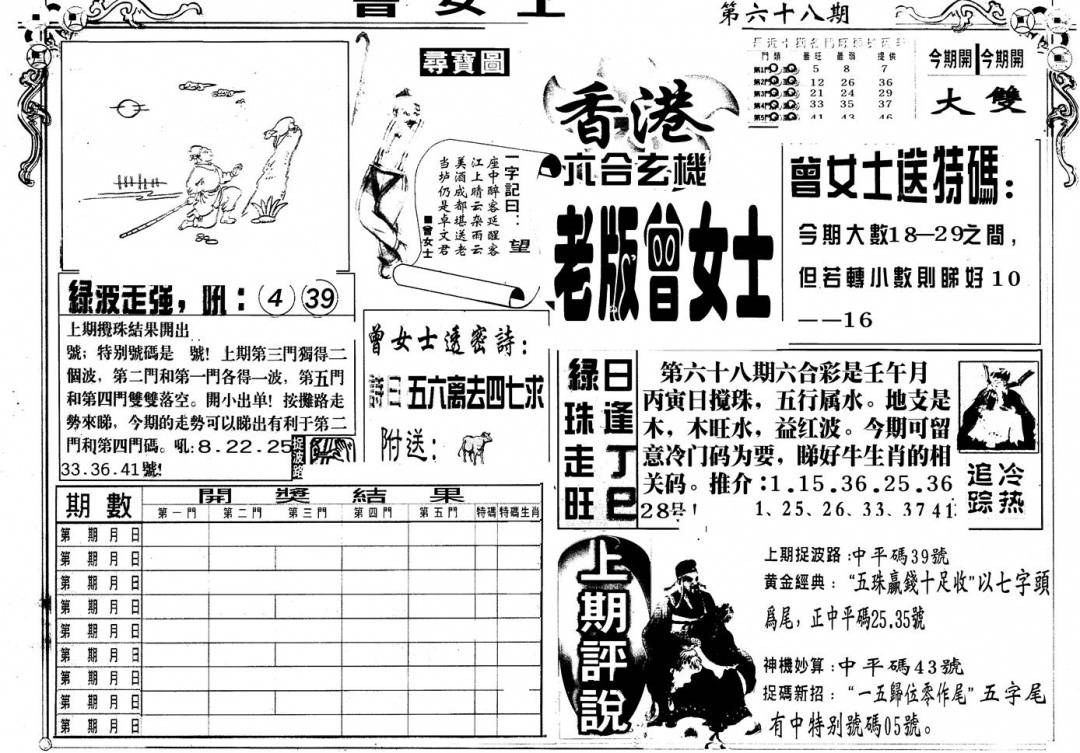 曾女士
第六十八期
尋寶圖
一字記曰：望
座中醉客延醒客
江上晴云杂雨云
美酒成都堪送老
当垆仍是卓文君
■曾女士
香港
六合玄機
老版曾女士
門類 最旺 最弱 提供
第1門 5 8 7
第2門 12 26 36
第3門 21 24 29
第4門 33 35 37
第5門 41 43 46
今期開 今期開
大 雙
曾女士送特碼：
今期大數18—29之間，
但若轉小數則睇好10
——16
綠波走强，吼：④ ㊴
上期攪珠結果開出
號；特别號碼是 號！上期第三門獨得二
個波，第二門和第一門各得一波，第五門
和第四門雙雙落空。開小出单！按攤路走
勢來睇，今期的走勢可以睇出有利于第二
門和第四門碼。吼:8.22.25
33.36.41號!
捉波路
曾女士透密詩：
詩曰 五六离去四七求
附送：
綠珠走旺
日逢丁巳
第六十八期六合彩是壬午月
丙寅日搅珠，五行属水。地支是
木，木旺水，益红波。今期可留
意冷门码为要，睇好牛生肖的相
关码。推介：1.15.36.25.36
28号！ 1、25、26、33、37 41
追踪
冷热
期數 開獎結果
第一門 第二門 第三門 第四門 第五門 特碼 特碼生肖
第 期 月 日
第 期 月 日
第 期 月 日
第 期 月 日
第 期 月 日
第 期 月 日
第 期 月 日
第 期 月 日
第 期 月 日
上期評說
上期捉波路：中平碼39號
黄金經典：“五珠贏錢十足收”以七字頭
爲尾，正中平碼25.35號
神機妙算：中平碼43號
捉碼新招：“一五歸位零作尾”五字尾
有中特别號碼05號。